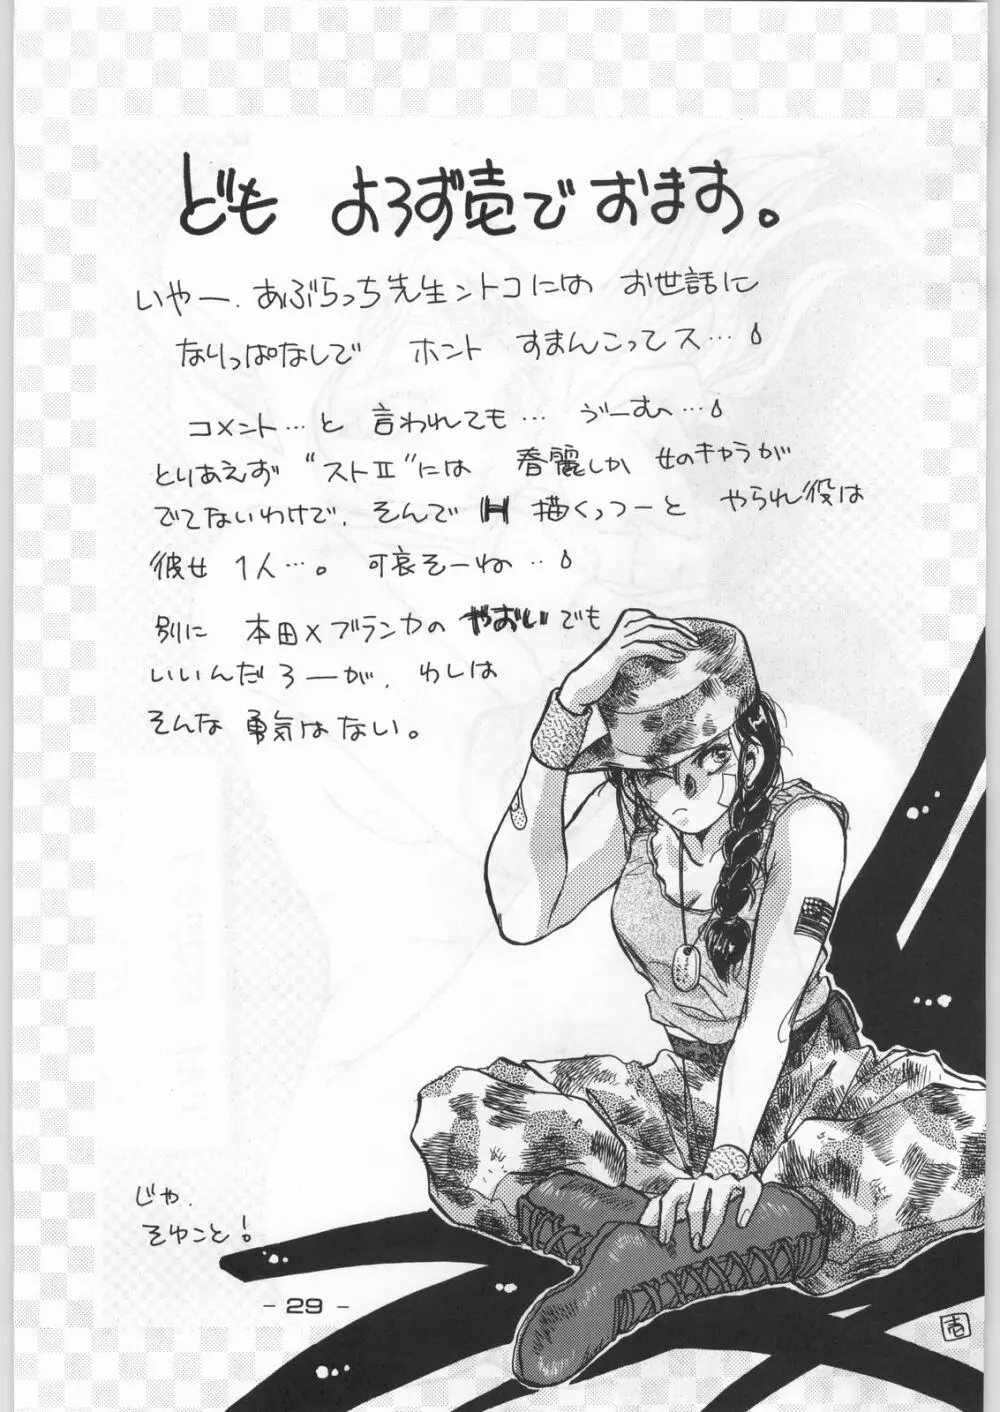 ども よろず壱でおます。
いやー、あぶらっち先生ントコにはお世話に
なりっぱなしで ホント すまんこってス…
コメント…と 言われても… うーむ…
とりあえず "ストⅡ"には 春麗しか 女のキャラが
でてないわけで、そんで H 描くっつーと やられ役は
彼女 1人…。可哀そーね…
別に 本田×ブランカの やおいでも
いいんだろーが、わしは
そんな 勇気はない。
じゃ、
そゆこと!
- 29 -
壱